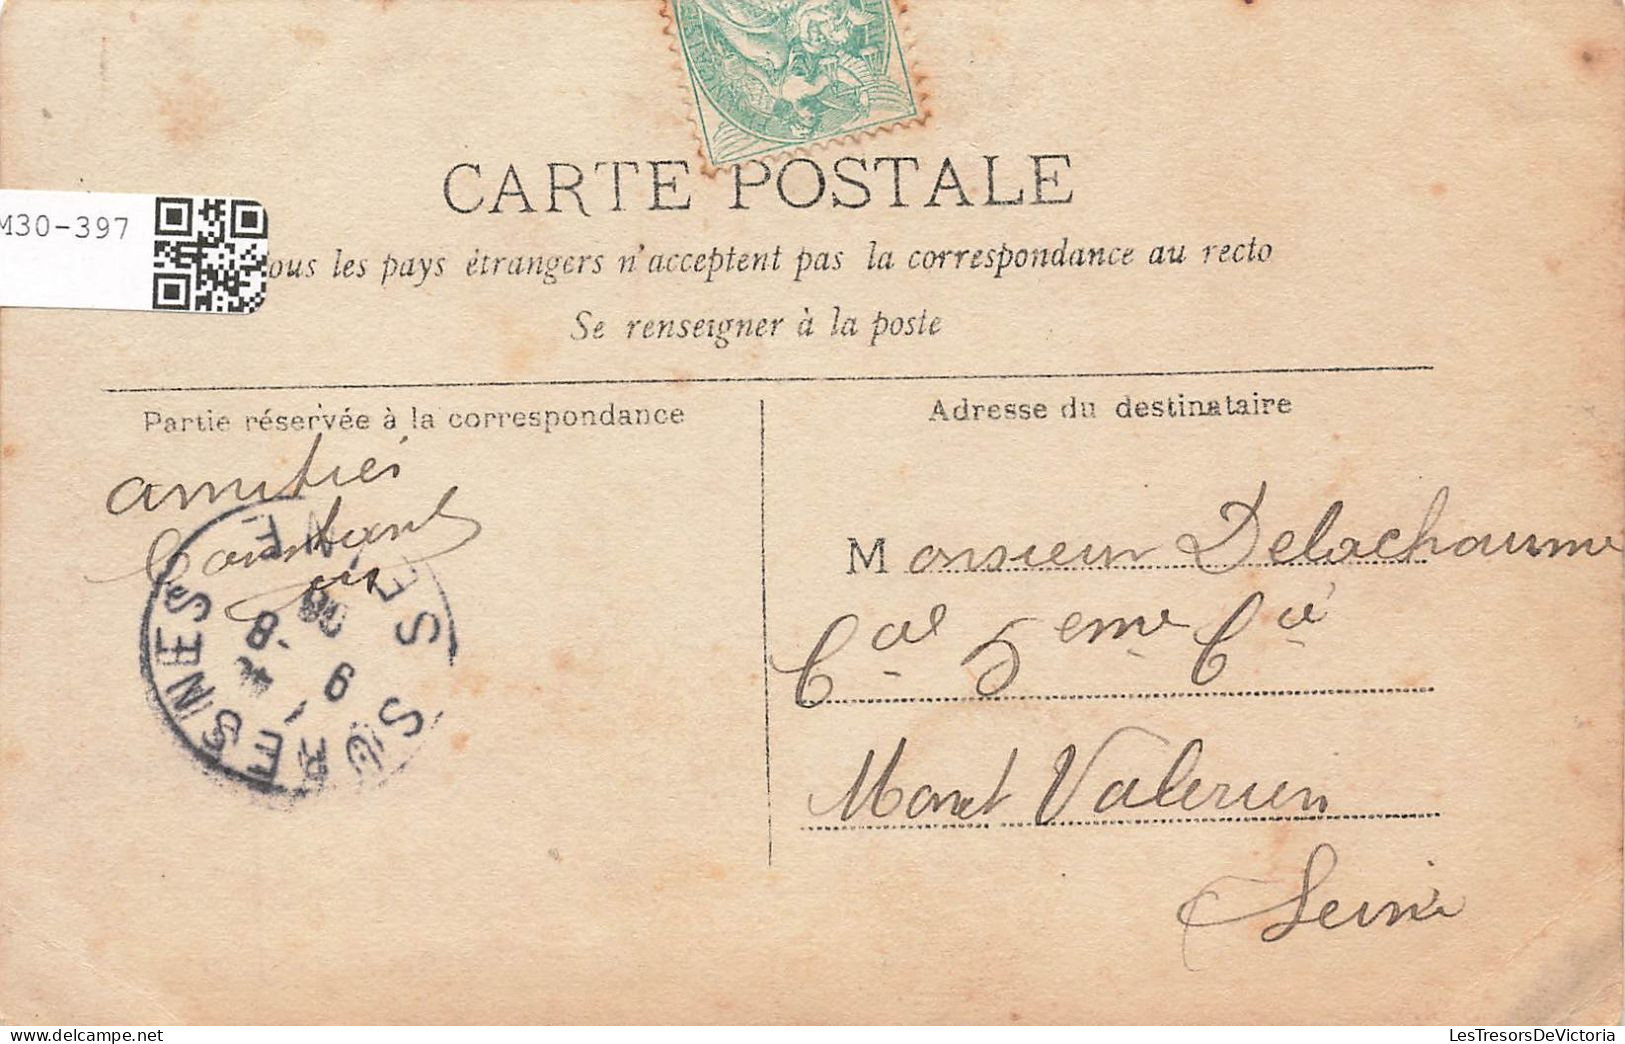 CARTE POSTALE
M30-397
ous les pays étrangers n'acceptent pas la correspondance au recto
Se renseigner à la poste
Partie réservée à la correspondance
Adresse du destinataire
amitiés
Constant
Monsieur Delachaume
Cal 5eme Cie
Mont Valerien
Seine
SURESNES SEINE
LesTresorsDeVictoria